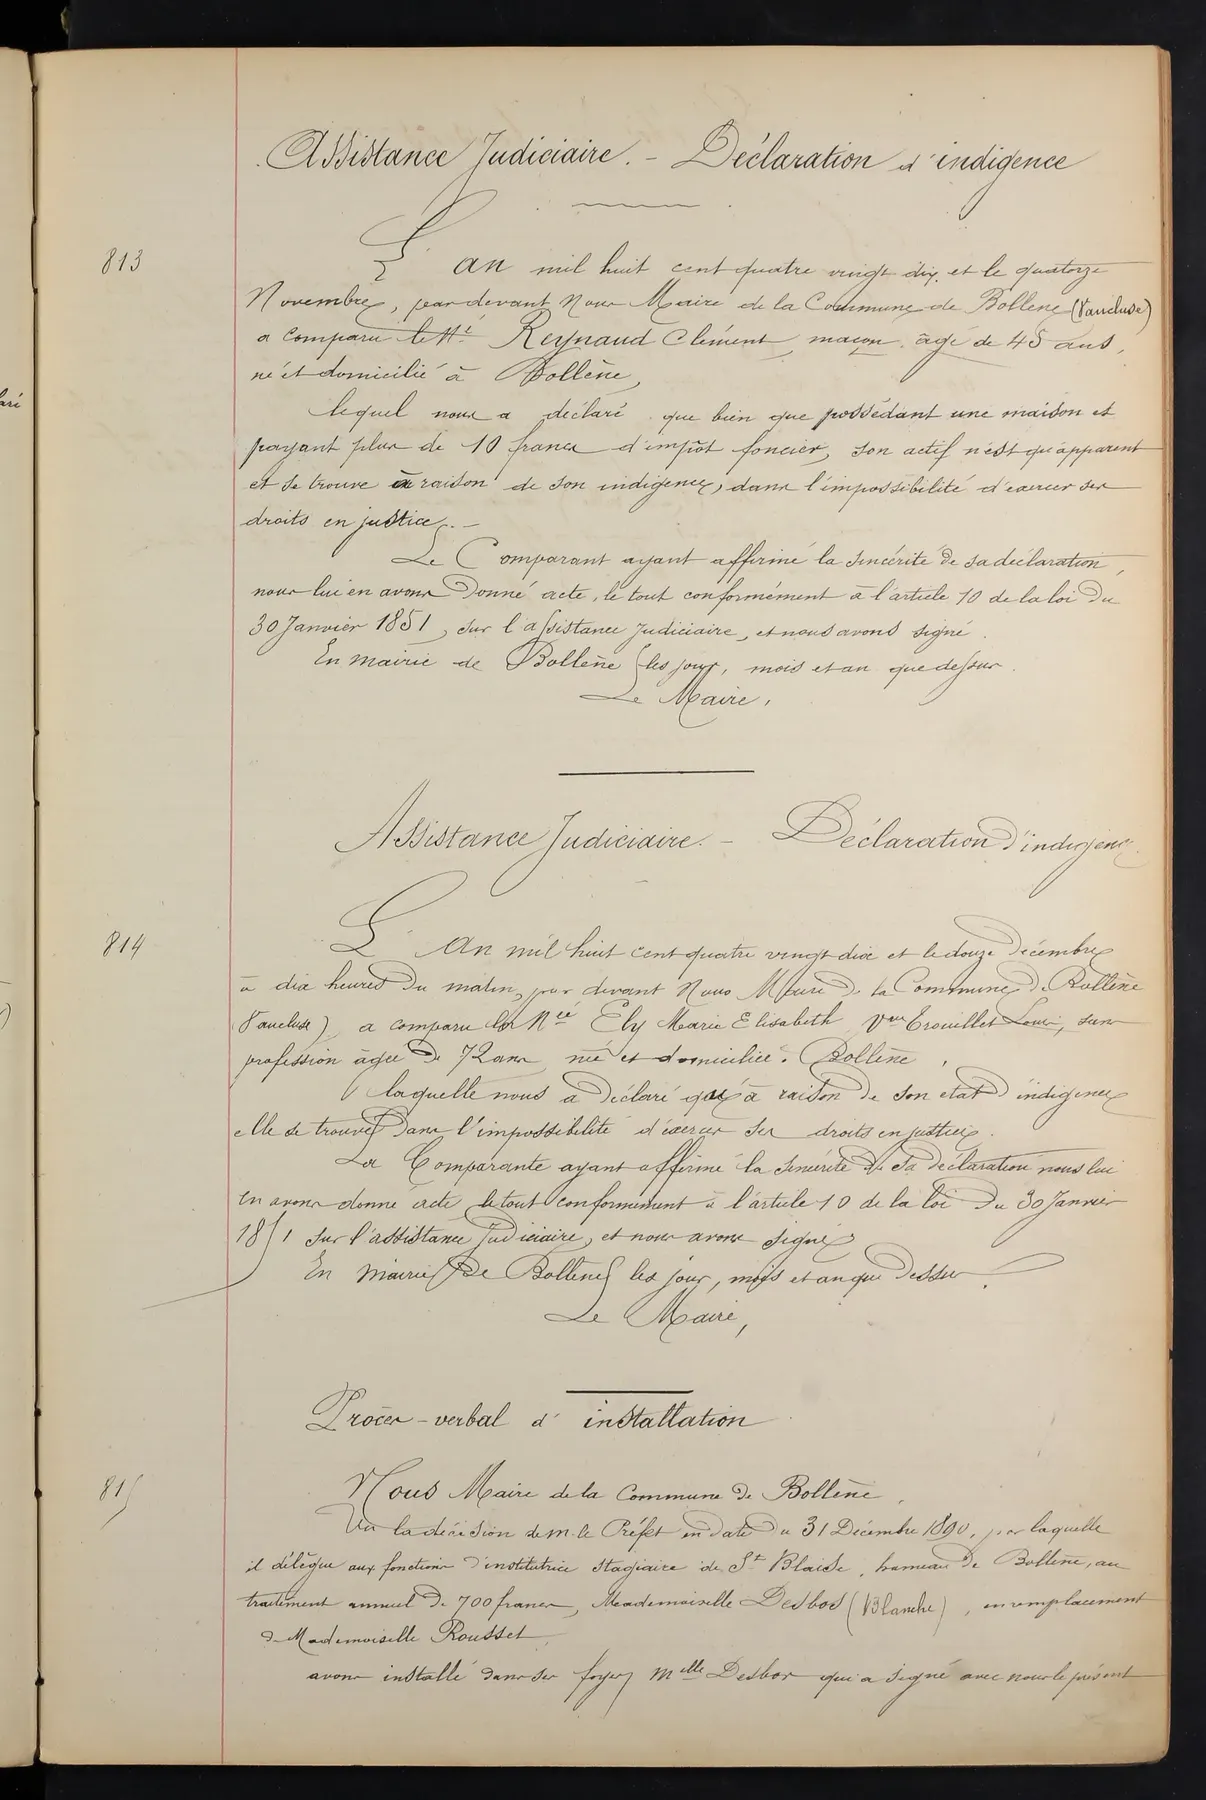 Assistance Judiciaire. - Déclaration d'indigence
813
L'an mil huit cent quatre vingt dix et le quatorze
Novembre, par devant Nous Maire de la Commune de Bollène (Vaucluse)
a comparu le Reynaud Clément, maçon, âgé de 45 ans,
né et domicilié à Bollène,
lequel nous a déclaré que bien que possédant une maison et
payant plus de 10 francs d'impôt foncier, son actif n'est qu'apparent
et se trouve à raison de son indigence, dans l'impossibilité d'exercer ses
droits en justice. -
Le Comparant ayant affirmé la sincérité de sa déclaration,
nous lui en avons Donné acte, le tout conformément à l'article 10 de la loi du
30 Janvier 1851, sur l'assistance Judiciaire, et nous avons signé.
En mairie de Bollène les jour, mois et an que dessus.
Le Maire,
Assistance Judiciaire. - Déclaration d'indigence
814
L'An mil huit cent quatre vingt dix et le douze Décembre
à dix heures Du matin, par devant Nous Maire De la Commune De Bollène
Vaucluse) a comparu la Née Ely Marie Elisabeth Vve Louis, sans
profession âgée De 72 ans née et domiciliée à Bollène,
laquelle nous a Déclaré qu'à raison De son état D'indigence
elle se trouve Dans l'impossibilité d'exercer ses droits en justice.
La Comparante ayant affirmé la sincérité De sa Déclaration nous lui
en avons donné acte le tout conformément à l'article 10 de la loi Du 30 Janvier
1851 sur l'assistance Judiciaire, et nous avons signé
En mairie De Bollène les jour, mois et an que Dessus.
Le Maire,
Procès-verbal d'installation
815
Nous Maire de la Commune De Bollène,
Vu la décision de M. le Préfet en Date Du 31 Décembre 1890, par laquelle
il délègue aux fonctions D'institutrice stagiaire de St Blaise, hameau De Bollène, au
traitement annuel De 700 francs, Mademoiselle Desbos (Blanche), en remplacement
De Mademoiselle Rousset,
avons installé dans ses Melle Desbos qui a signé avec nous le présent